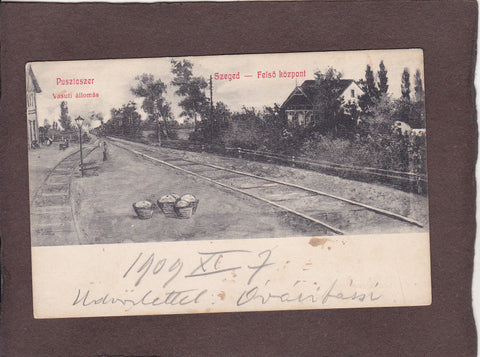 Pusztaszer
Vasuti állomás
Szeged — Felső központ
1909 XI. 7
Üdvözlettel: